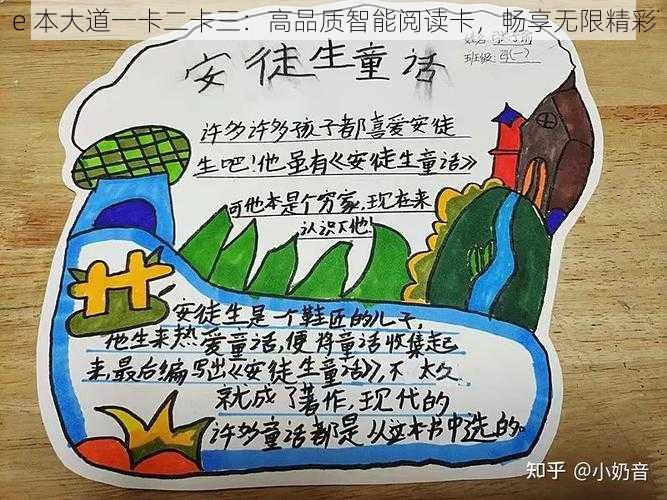 e 本大道一卡二卡三：高品质智能阅读卡，畅享无限精彩
班级:四(一)
安徒生童话
许多许多孩子都喜爱安徒
生吧!他虽有《安徒生童话》
可他本是个穷家,现在来
认识下他!
安徒生是一个鞋匠的儿子,
他生来热爱童话,便将童话收集起
来,最后编写出《安徒生童话》,不太久
就成了著作,现代的
许多童话都是从这本书中选的。
知乎 @小奶音